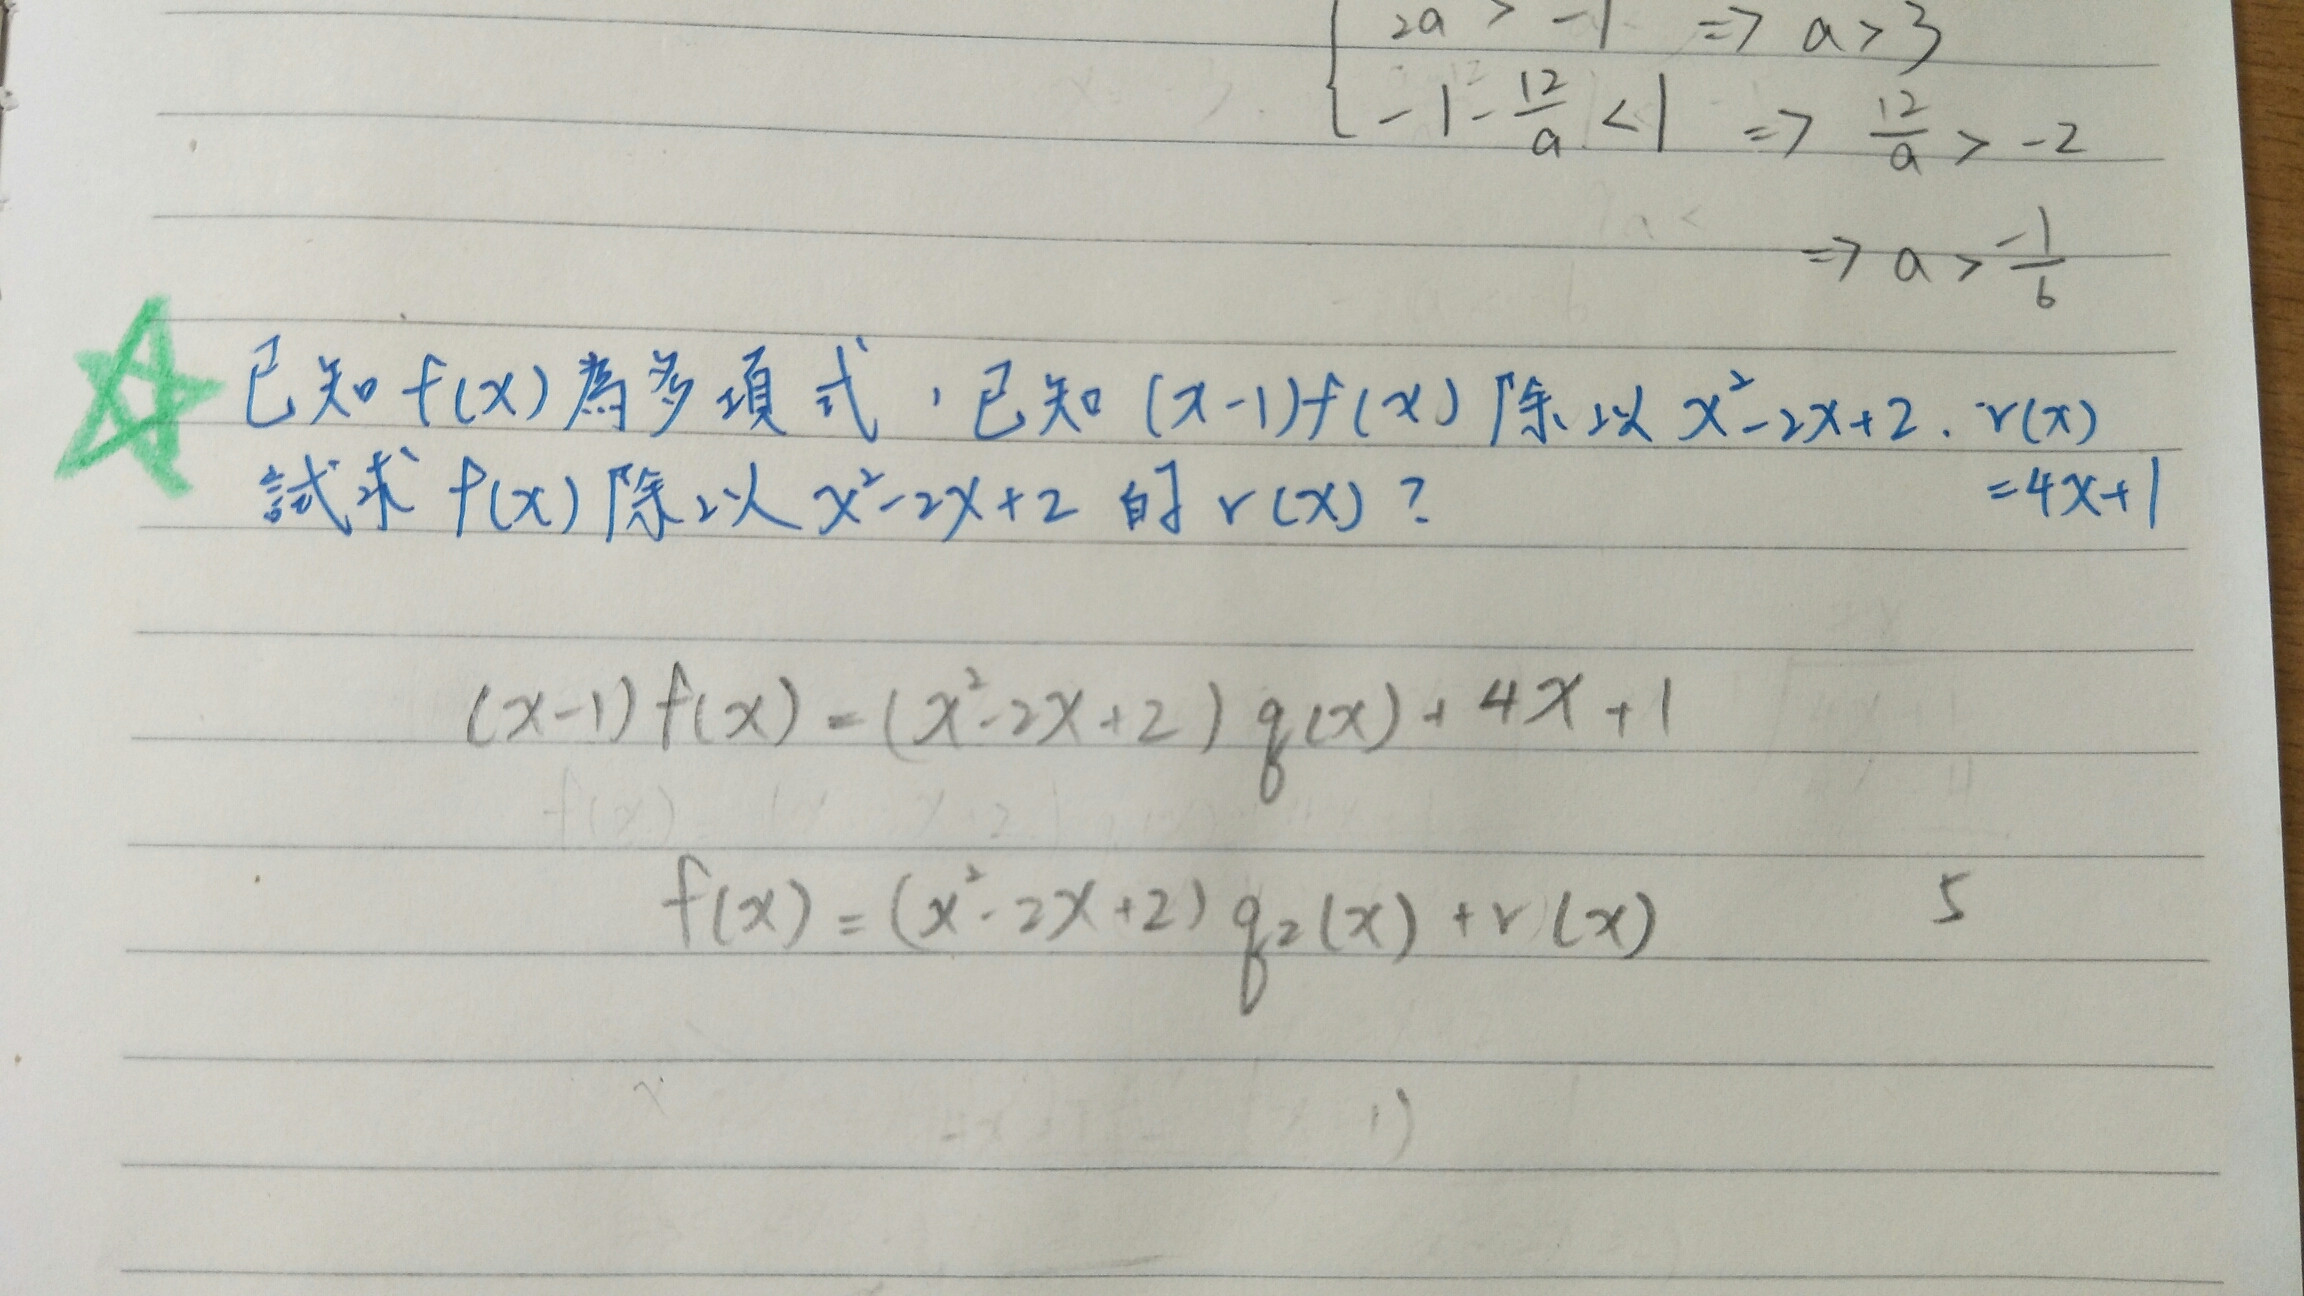 2a > -1 => a > 3
-1 - 12/a < 1 => 12/a > -2
=> a > -1/6
已知 f(x) 為多項式，已知 (x-1)f(x) 除以 x²-2x+2. r(x)
=4x+1
試求 f(x) 除以 x²-2x+2 的 r(x)?
(x-1) f(x) = (x²-2x+2) q(x) + 4x+1
f(x) = (x²-2x+2) q₂(x) + r(x)
5